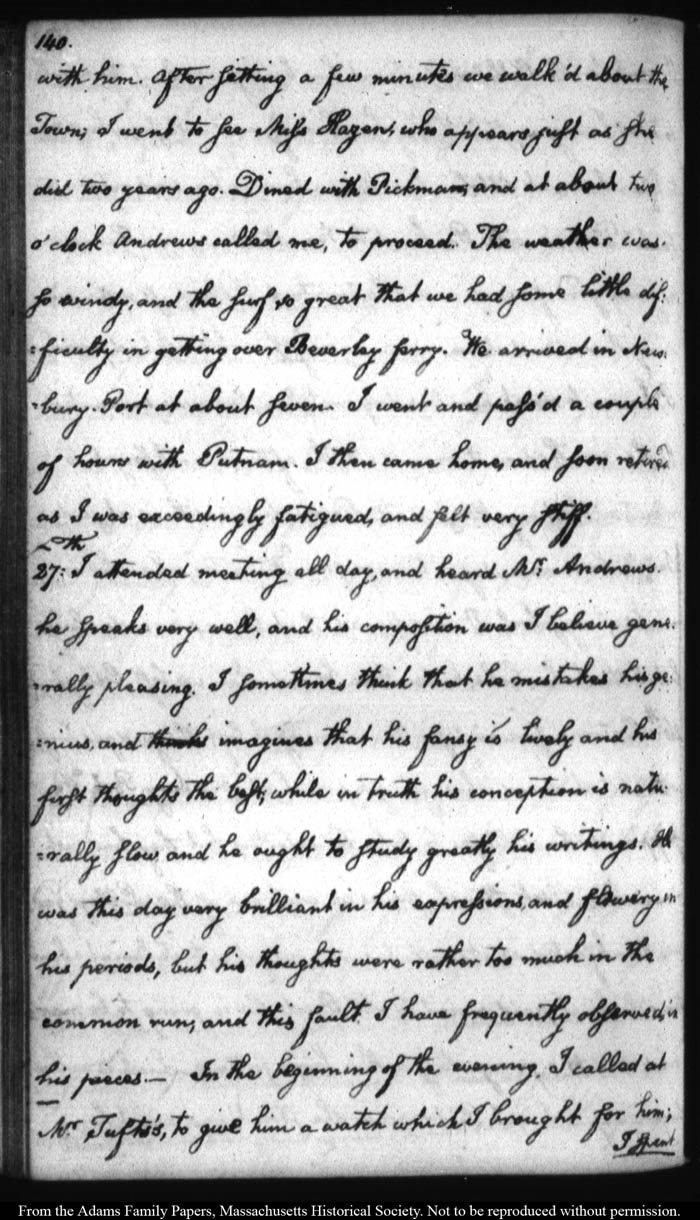 140.
with him. After setting a few minutes we walk'd about the
Town; I went to see Miss Hazen, who appears just as she
did two years ago. Dined with Pickman, and at about two
o'clock Andrews called me, to proceed. The weather was
so windy, and the surf so great that we had some little dif:
:ficulty in getting over Beverley ferry. We arrived in New:
:bury-Port at about seven. I went and pass'd a couple
of hours with Putnam. I then came home, and soon retired
as I was exceedingly fatigued, and felt very stiff.
27:th I attended meeting all day, and heard Mr. Andrews.
he speaks very well, and his composition was I believe gene:
:rally pleasing. I sometimes think that he mistakes his ge:
:nius, and thinks imagines that his fansy is lively and his
first thoughts the best; while in truth his conception is natu:
:rally slow and he ought to study greatly his writings. He
was this day very brilliant in his expressions, and flowery in
his periods, but his thoughts were rather too much in the
common run; and this fault I have frequently observed, in
his pieces.— In the beginning of the evening, I called at
Mr. Tufts's, to give him a watch which I brought for him;
I spent
From the Adams Family Papers, Massachusetts Historical Society. Not to be reproduced without permission.